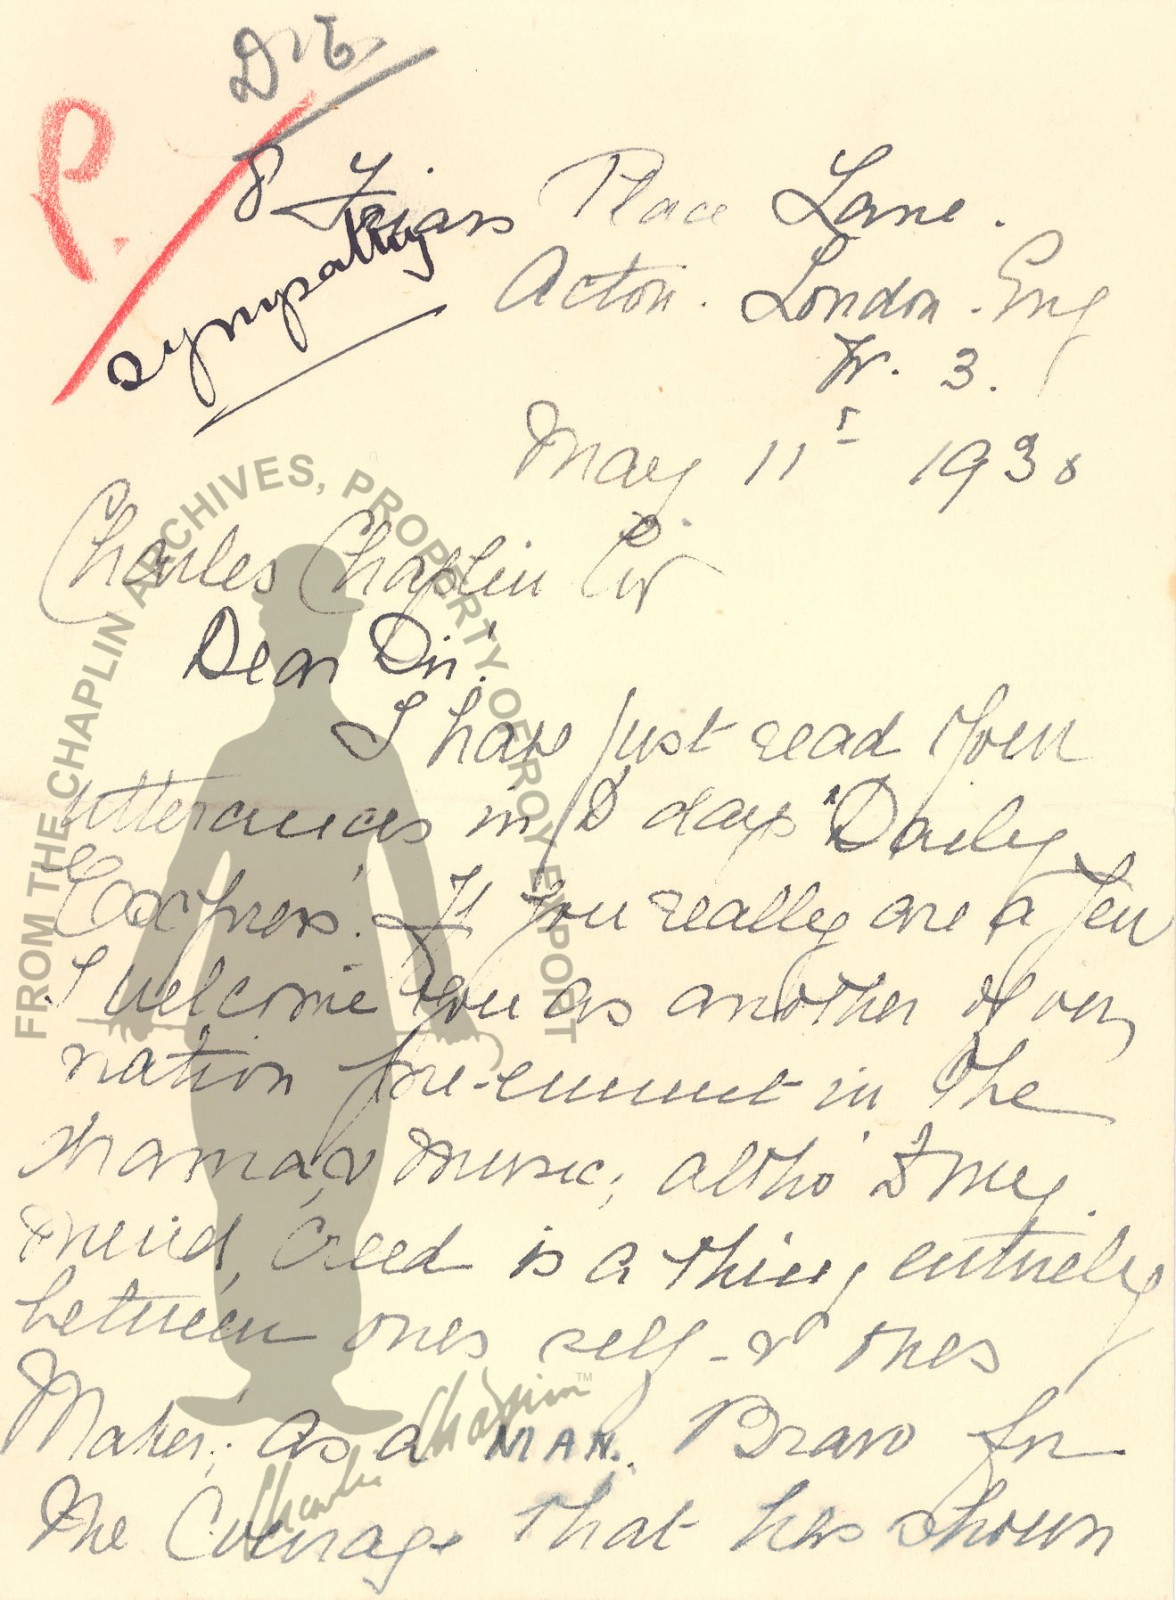 P.
8 Friars Place Lane.
sympathy
Acton. London. Eng
W. 3.
May 11th 193
Charles Chaplin Esqr
Dear Sir.
I have just read your
utterances in to days "Daily
Express". If you really are a Jew
I welcome you as another of our
nation pre-eminent in the
drama & music; altho' to my
mind, creed is a thing entirely
between ones self & ones
Maker; as a MAN. Bravo for
the Courage that has shown
FROM THE CHAPLIN ARCHIVES, PROPERTY OF ROY EXPORT
Charlie Chaplin TM